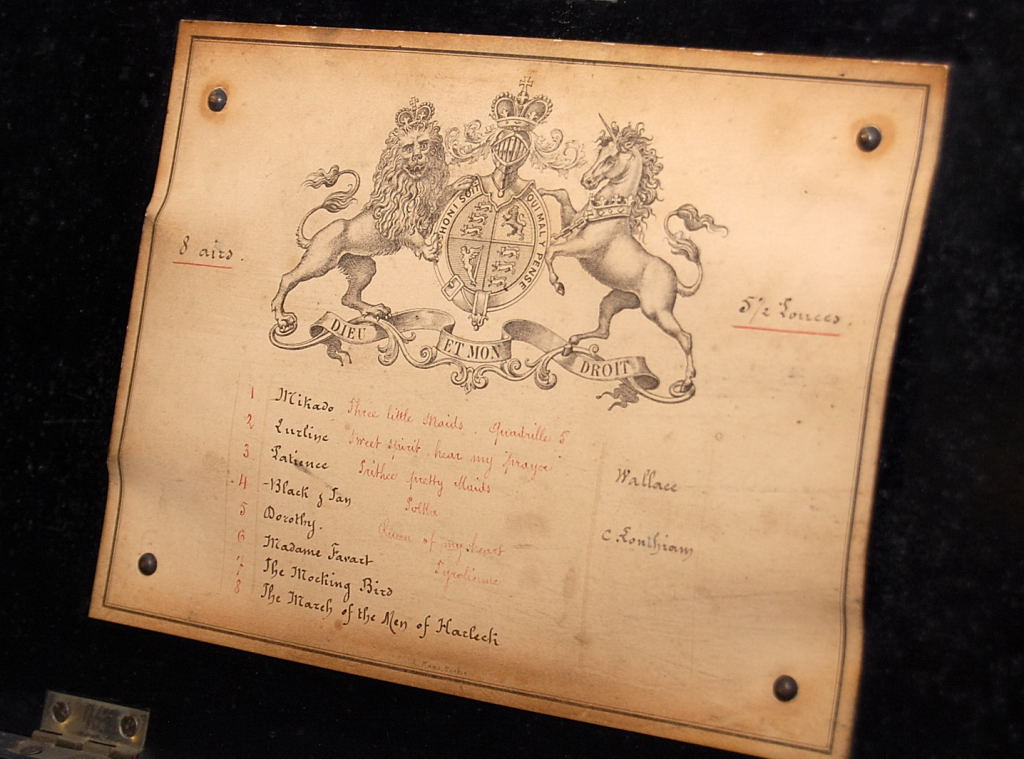 HONI SOIT QUI MAL Y PENSE
DIEU ET MON DROIT
8 airs.
5 1/2 Pouces.
1 Mikado Three little Maids. Quadrille 5
2 Lurline Sweet spirit, hear my prayer Wallace
3 Patience Prithee pretty Maids
4 Black & Tan Polka C. Lowthian
5 Dorothy. Queen of my heart
6 Madame Favart Tyrolienne
7 The Mocking Bird
8 The March of the Men of Harlech